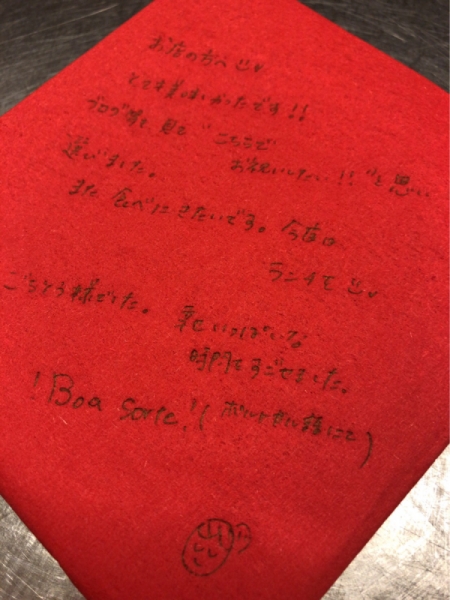 お店の方へ
とても美味しかったです!!
ブログ等を見て“こちらで
お祝いしたい!!”と思い
選びました。
また食べにきたいです。今度は
ランチを
ごちそう様でした。幸せいっぱいな
時間をすごせました。
!Boa Sorte!(ポルトガル語にて)